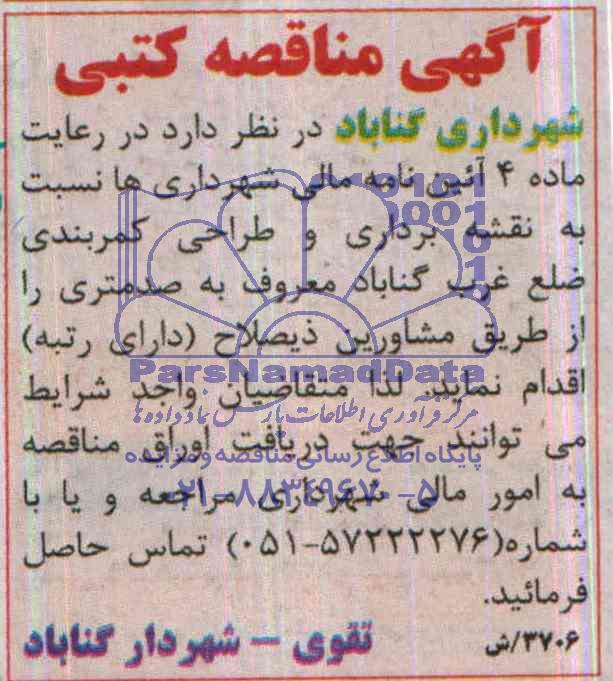 آگهی مناقصه کتبی
شهرداری گناباد در نظر دارد در رعایت
ماده ۴ آئین نامه مالی شهرداری ها نسبت
به نقشه برداری و طراحی کمربندی
ضلع غرب گناباد معروف به صدمتری را
از طریق مشاورین ذیصلاح (دارای رتبه)
اقدام نماید. لذا متقاضیان واجد شرایط
می توانند جهت دریافت اوراق مناقصه
به امور مالی شهرداری مراجعه و یا با
شماره(۵۷۲۲۲۲۷۶-۰۵۱) تماس حاصل
فرمائید.
تقوی – شهردار گناباد
۳۷۰۶/ش
ParsNamadData
مرکز فرآوری اطلاعات پارس نماد داده ها
پایگاه اطلاع رسانی مناقصه و مزایده
۰۲۱-۸۸۳۴۹۶۷۰-۵